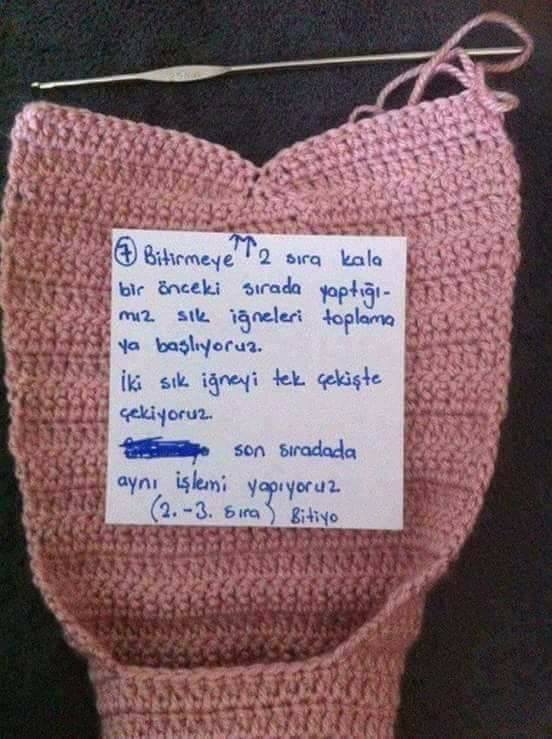 7 Bitirmeye ↑↑ 2 sıra kala
bir önceki sırada yaptığı-
mız sık iğneleri toplama
ya başlıyoruz.
İki sık iğneyi tek çekişte
çekiyoruz.
son sıradada
aynı işlemi yapıyoruz
(2.-3. sıra) Bitiyo